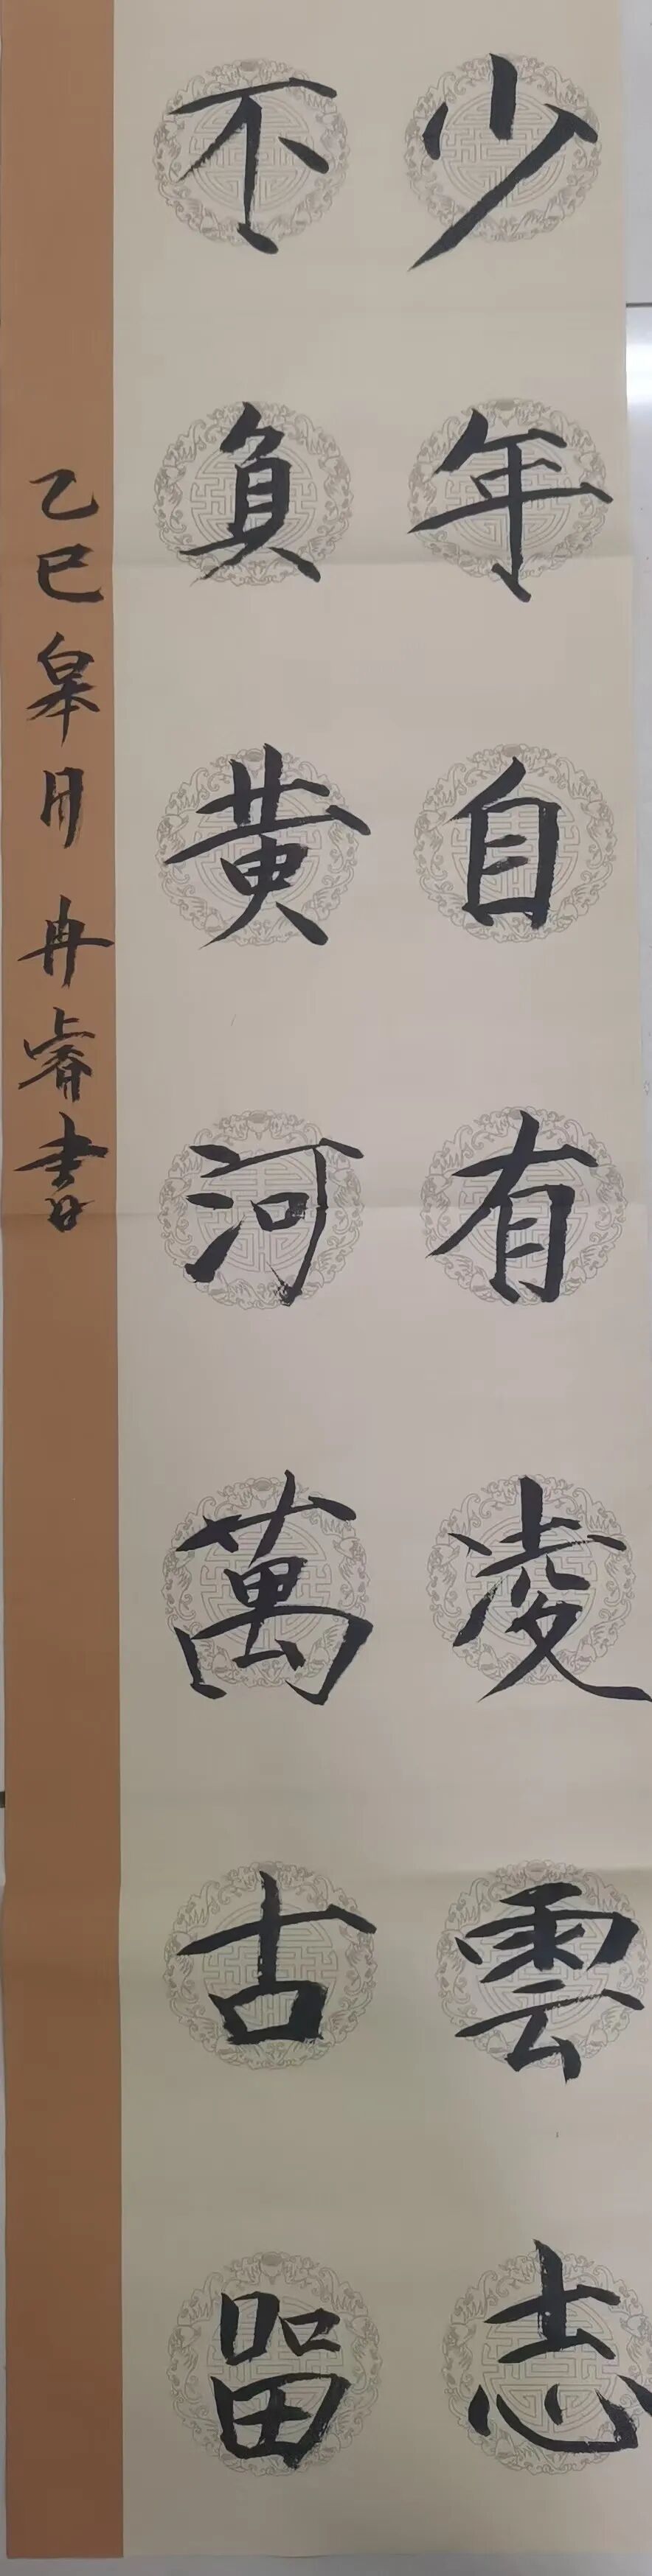 少年自有凌雲志
不負黄河萬古留
乙巳皋月冉睿書